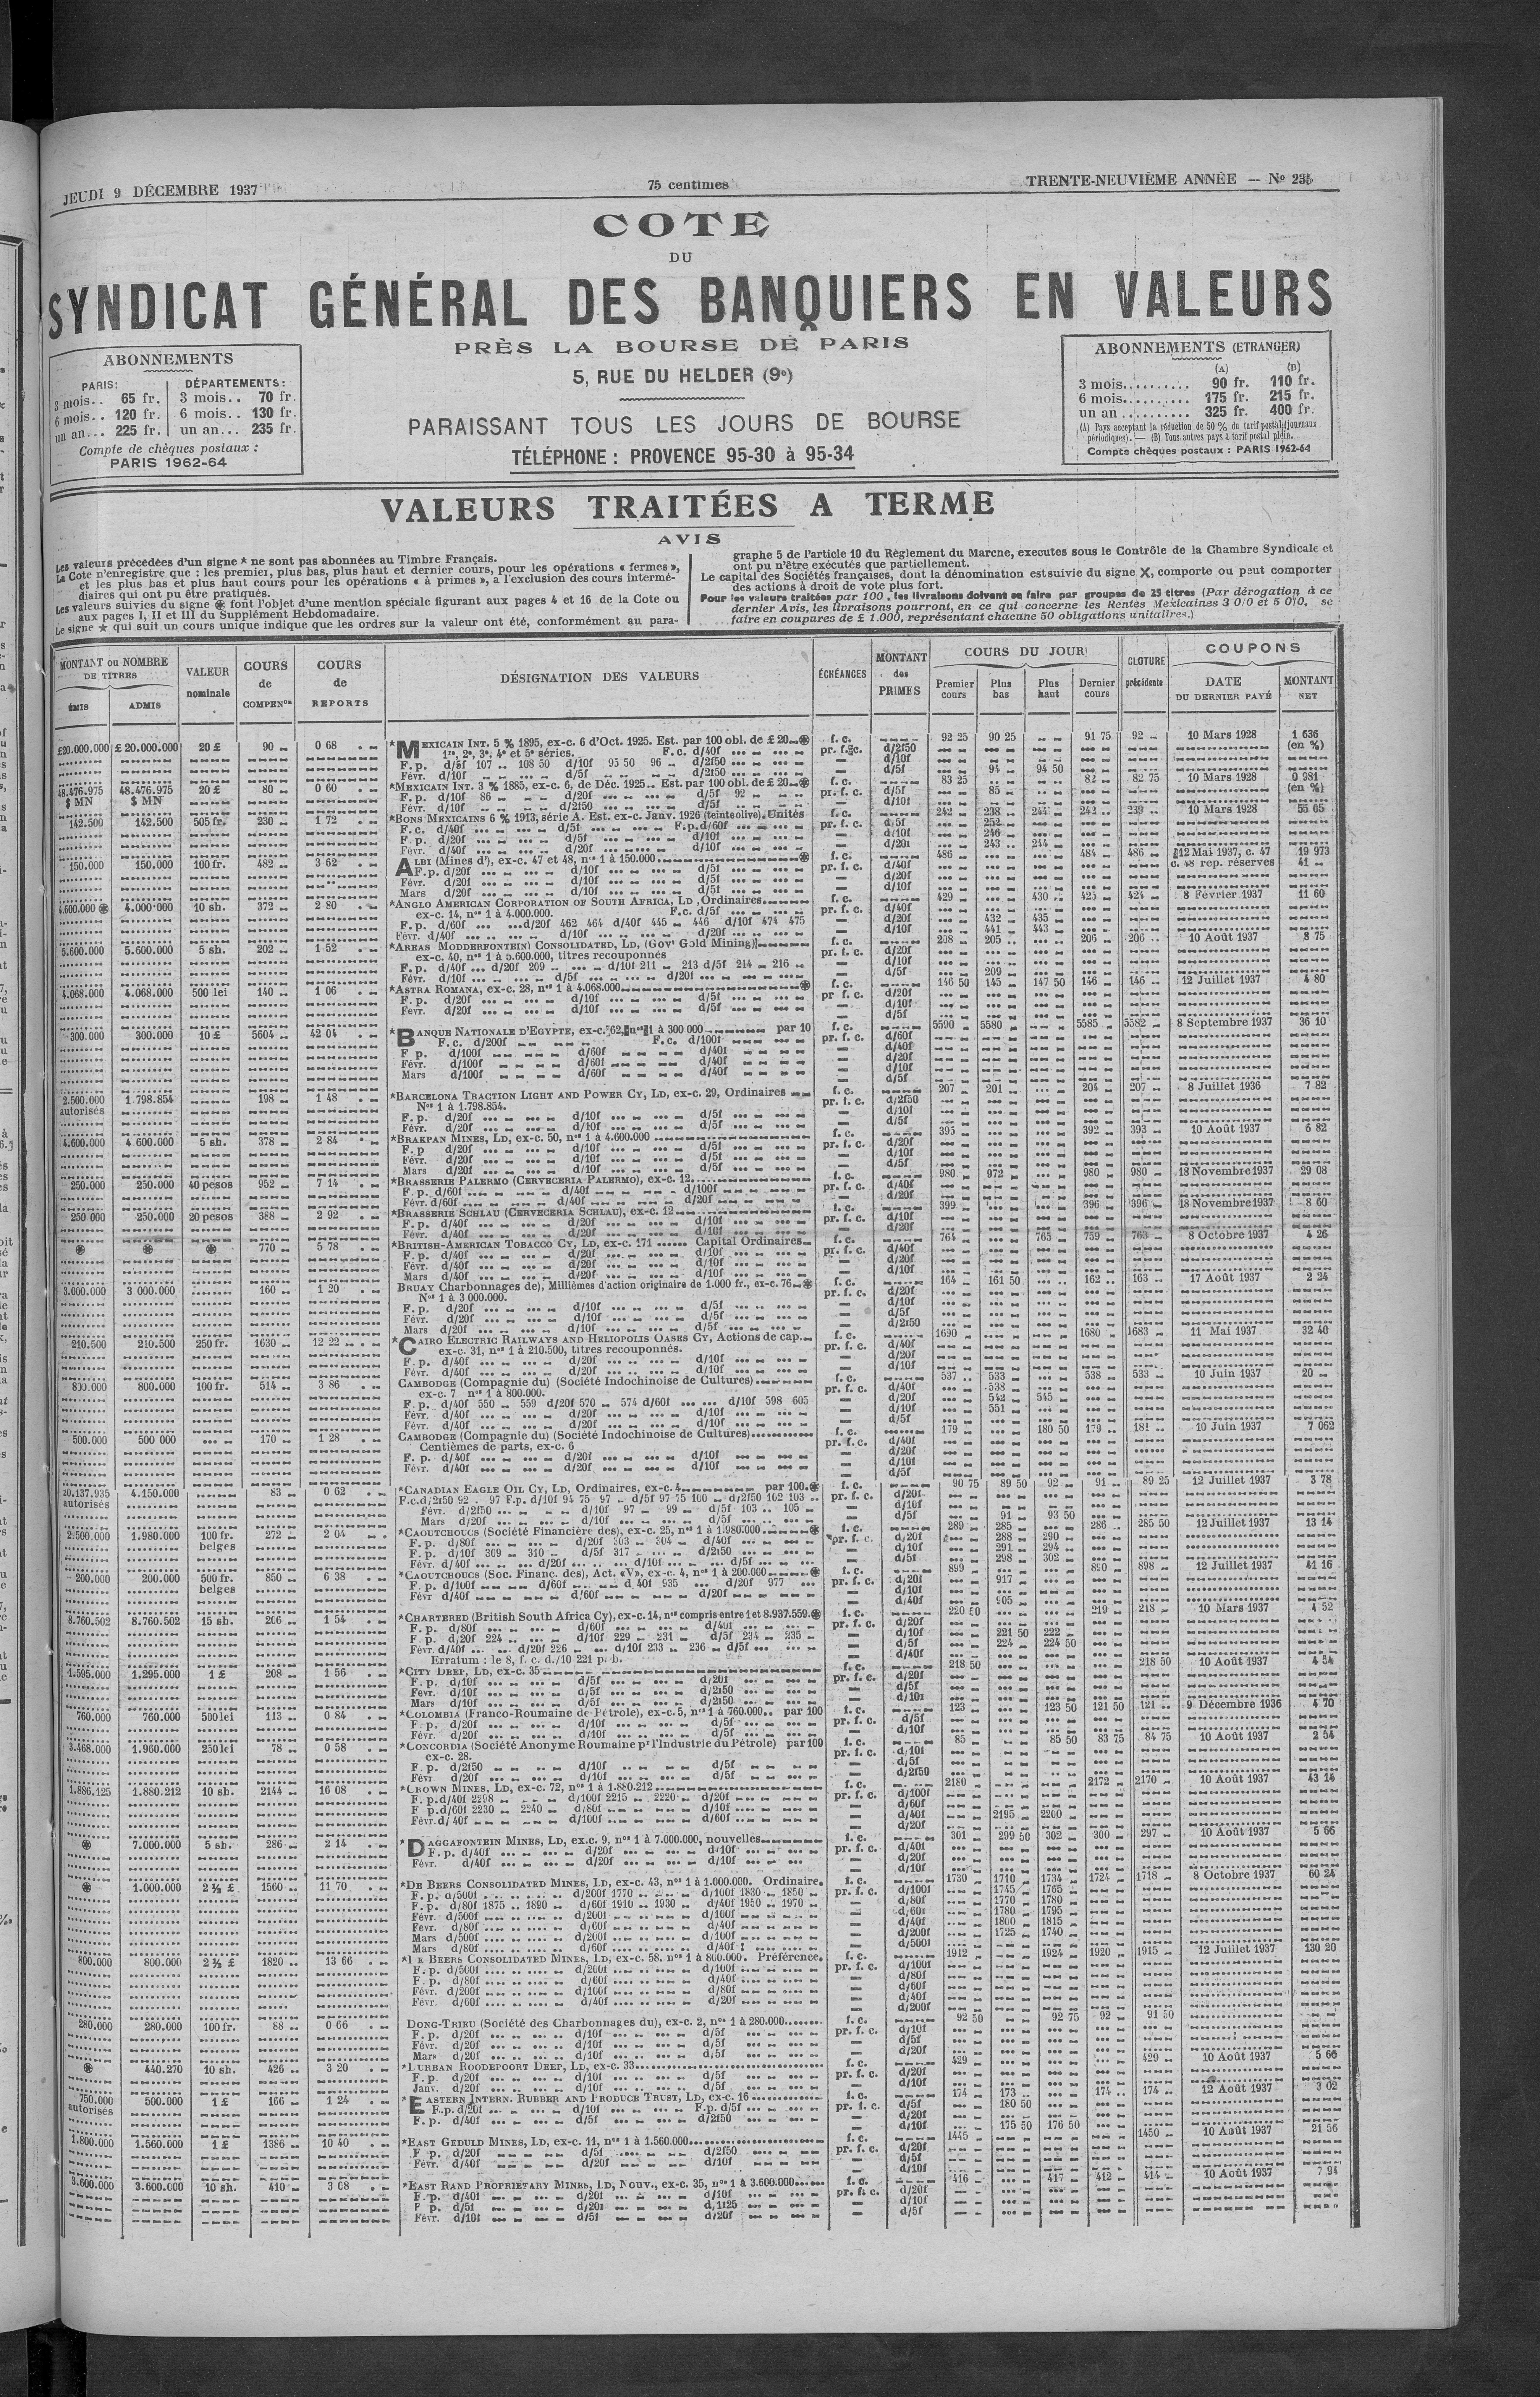 JEUDI 9 DÉCEMBRE 1937
75 centimes
TRENTE-NEUVIÈME ANNÉE — No 235
COTE
DU
SYNDICAT GÉNÉRAL DES BANQUIERS EN VALEURS
PRÈS LA BOURSE DE PARIS
5, RUE DU HELDER (9e)
PARAISSANT TOUS LES JOURS DE BOURSE
TÉLÉPHONE : PROVENCE 95-30 à 95-34
ABONNEMENTS
PARIS: DÉPARTEMENTS:
3 mois.. 65 fr. 3 mois.. 70 fr.
6 mois.. 120 fr. 6 mois.. 130 fr.
un an... 225 fr. un an... 235 fr.
Compte de chèques postaux :
PARIS 1962-64
ABONNEMENTS (ETRANGER)
(A) (B)
3 mois.......... 90 fr. 110 fr.
6 mois.......... 175 fr. 215 fr.
un an .......... 325 fr. 400 fr.
(A) Pays acceptant la réduction de 50 % du tarif postal (journaux
périodiques). — (B) Tous autres pays à tarif postal plein.
Compte chèques postaux : PARIS 1962-64
VALEURS TRAITÉES A TERME
AVIS
Les valeurs précédées d'un signe * ne sont pas abonnées au Timbre Français.
La Cote n'enregistre que : les premier, plus bas, plus haut et dernier cours, pour les opérations « fermes »,
et les plus bas et plus haut cours pour les opérations « à primes », a l'exclusion des cours intermé-
diaires qui ont pu être pratiqués.
Les valeurs suivies du signe ֍ font l'objet d'une mention spéciale figurant aux pages 4 et 16 de la Cote ou
aux pages I, II et III du Supplément Hebdomadaire.
Le signe ★ qui suit un cours unique indique que les ordres sur la valeur ont été, conformément au para-
graphe 5 de l'article 10 du Règlement du Marche, executes sous le Contrôle de la Chambre Syndicale et
ont pu n'être exécutés que partiellement.
Le capital des Sociétés françaises, dont la dénomination est suivie du signe X, comporte ou peut comporter
des actions à droit de vote plus fort.
Pour les valeurs traitées par 100, les livraisons doivent se faire par groupes de 25 titres (Par dérogation à ce
dernier Avis, les livraisons pourront, en ce qui concerne les Rentes Mexicaines 3 0/0 et 5 0/0, se
faire en coupures de £ 1.000, représentant chacune 50 obligations unitaires.)
MONTANT ou NOMBRE DE TITRES
ÉMIS ADMIS
VALEUR nominale
COURS de COMPENon
COURS de REPORTS
DÉSIGNATION DES VALEURS
ÉCHÉANCES
MONTANT des PRIMES
COURS DU JOUR
Premier cours Plus bas Plus haut Dernier cours
CLOTURE précédente
COUPONS
DATE DU DERNIER PAYÉ
MONTANT NET
£20.000.000 £ 20.000.000 20 £ 90 0 68 *MEXICAIN INT. 5 % 1895, ex-c. 6 d'Oct. 1925. Est. par 100 obl. de £ 20 f. c. 92 25 90 25 91 75 92 10 Mars 1928 1 636
1re, 2e, 3e, 4e et 5e séries. F.c. d/40f pr. f. c. d/2f50 (en %)
F. p. d/5f 107 .. 108 50 d/10f 95 50 96 d/2f50
Févr. d/10f d/5f d/2f50 d/5f 94 94 50
48.476.975 48.476.975 20 £ 80 0 60 *MEXICAIN INT. 3 % 1885, ex-c. 6, de Déc. 1925.. Est. par 100 obl. de £ 20 f. c. 83 25 82 82 75 10 Mars 1928 0 981
$ MN $ MN F. p. d/10f 86 d/20f d/5f 92 pr. f. c. d/5f 85 (en %)
Févr. d/10f d/2f50 d/5f d/10f
142.500 142.500 505 fr. 230 1 72 *BONS MEXICAINS 6 % 1913, série A. Est. ex-c. Janv. 1926 (teinte olive). Unités f. c. 242 238 244 242 239 10 Mars 1928 55 05
F. c. d/40f d/5f F.p. d/60f pr. f. c. d/5f 252
F. p. d/20f d/5f d/10f d/10f 246
Févr. d/40f d/20f d/10f d/20f 243 244
150.000 150.000 100 fr. 482 3 62 ALBI (Mines d'), ex-c. 47 et 48, nos 1 à 150.000 f. c. 486 484 486 12 Mai 1937, c. 47 19 973
F. p. d/20f d/10f d/5f pr. f. c. d/40f c. 48 rep. réserves 41
Févr. d/20f d/10f d/5f d/20f
Mars d/20f d/10f d/5f d/10f
4.600.000 4.000.000 10 sh. 372 2 80 *ANGLO AMERICAN CORPORATION OF SOUTH AFRICA, LD, Ordinaires f. c. 429 430 425 424 8 Février 1937 11 60
ex-c. 14, nos 1 à 4.000.000. F.c. d/5f pr. f. c. d/40f
F. p. d/60f d/20f 462 464 d/40f 445 446 d/10f 474 475 d/20f 432 435
Févr. d/40f d/10f d/20f d/10f 441 443
5.600.000 5.600.000 5 sh. 202 1 52 *AREAS MODDERFONTEIN CONSOLIDATED, LD, (Govt Gold Mining) f. c. 208 205 206 206 10 Août 1937 8 75
ex-c. 40, nos 1 à 5.600.000, titres recouponnés pr. f. c. d/20f
F. p. d/40f d/20f 209 d/10f 211 213 d/5f 214 216 d/10f
Févr. d/10f d/5f d/20f d/5f 209
4.068.000 4.068.000 500 lei 140 1 06 *ASTRA ROMANA, ex-c. 28, nos 1 à 4.068.000 f. c. 146 50 145 147 50 146 146 12 Juillet 1937 4 80
F. p. d/20f d/10f d/5f pr f. c. d/20f
Févr. d/20f d/10f d/5f d/10f
d/5f
300.000 300.000 10 £ 5604 42 04 *BANQUE NATIONALE D'EGYPTE, ex-c. 62, nos 1 à 300 000 par 10 f. c. 5590 5580 5585 5582 8 Septembre 1937 36 10
F. c. d/200f F.c. d/100f pr. f. c. d/60f
F p. d/100f d/60f d/40f d/40f
Févr. d/100f d/60f d/40f d/20f
Mars d/100f d/60f d/40f d/10f
d/5f
2.500.000 1.798.854 198 1 48 *BARCELONA TRACTION LIGHT AND POWER CY, LD, ex-c. 29, Ordinaires f. c. 207 201 204 207 8 Juillet 1936 7 82
autorisés Nos 1 à 1.798.854. pr. f. c. d/2f50
F. p. d/20f d/10f d/5f d/10f
Févr. d/20f d/10f d/5f d/5f
4.600.000 4 600.000 5 sh. 378 2 84 *BRAKPAN MINES, LD, ex-c. 50, nos 1 à 4.600.000 f. c. 395 392 393 10 Août 1937 6 82
F. p d/20f d/10f d/5f pr. f. c. d/20f
Févr. d/20f d/10f d/5f d/10f
Mars d/20f d/10f d/5f d/5f
250.000 250.000 40 pesos 952 7 14 *BRASSERIE PALERMO (CERVECERIA PALERMO), ex-c. 12 f. c. 980 972 980 980 18 Novembre 1937 29 08
F. p. d/60f d/40f d/100f pr. f. c. d/40f
Févr. d/60f d/40f d/20f d/20f
250 000 250.000 20 pesos 388 2 92 *BRASSERIE SCHLAU (CERVECERIA SCHLAU), ex-c. 12 f. c. 399 396 396 18 Novembre 1937 8 60
F. p. d/40f d/20f d/10f pr. f. c. d/10f
Févr. d/40f d/20f d/10f d/20f
770 5 78 *BRITISH-AMERICAN TOBACCO CY, LD, ex-c. 171 Capital Ordinaires f. c. 764 765 759 763 8 Octobre 1937 4 26
F. p. d/40f d/20f d/10f pr. f. c. d/40f
Févr. d/40f d/20f d/10f d/20f
Mars d/40f d/20f d/10f d/10f
3.000.000 3 000.000 160 1 20 BRUAY Charbonnages de), Millièmes d'action originaire de 1.000 fr., ex-c. 76 f. c. 164 161 50 162 163 17 Août 1937 2 24
Nos 1 à 3 000.000. pr. f. c. d/20f
F. p. d/20f d/10f d/5f d/10f
Févr. d/20f d/10f d/5f d/5f
Mars d/20f d/10f d/5f d/2f50
210.500 210.500 250 fr. 1630 12 22 *CAIRO ELECTRIC RAILWAYS AND HELIOPOLIS OASES CY, Actions de cap. f. c. 1690 1680 1683 11 Mai 1937 32 40
ex-c. 31, nos 1 à 210.500, titres recouponnés. pr. f. c. d/40f
F. p. d/40f d/20f d/10f d/20f
Févr. d/40f d/20f d/10f d/10f
800.000 800.000 100 fr. 514 3 86 CAMBODGE (Compagnie du) (Société Indochinoise de Cultures) f. c. 537 533 538 533 10 Juin 1937 20
ex-c. 7 nos 1 à 800.000. pr. f. c. d/40f 538
F p. d/40f 550 559 d/20f 570 574 d/60f d/10f 598 605 d/20f 542 545
Févr. d/40f d/20f d/10f d/10f 551
Févr. d/40f d/20f d/10f d/5f
500.000 500 000 170 1 28 CAMBODGE (Compagnie du) (Société Indochinoise de Cultures) f. c. 179 180 50 179 181 10 Juin 1937 7 062
Centièmes de parts, ex-c. 6 pr. f. c. d/40f
F. p. d/40f d/20f d/10f d/20f
Févr. d/40f d/20f d/10f d/10f
d/5f
4.150.000 83 0 62 *CANADIAN EAGLE OIL CY, LD, Ordinaires, ex-c. 4 par 100. f. c. 90 75 89 50 92 91 89 25 12 Juillet 1937 3 78
autorisés F.c. d/2f50 92 97 F.p. d/10f 94 75 97 d/5f 97 75 100 d/2f50 102 103 pr. f. c. d/20f
Févr. d/2f50 d/10f 97 99 d/5f 103 105 d/10f
Mars d/20f d/10f d/5f d/5f 91 93 50
2.500.000 1.980.000 100 fr. 272 2 04 *CAOUTCHOUCS (Société Financière des), ex-c. 25, nos 1 à 1.980.000 f. c. 289 285 286 285 50 12 Juillet 1937 13 14
belges F. p. d/80f d/20f 303 304 d/40f pr. f. c. d/20f 288 290
F. p. d/10f 309 310 d/5f 317 d/2f50 d/10f 291 294
Févr. d/40f d/20f d/10f d/5f d/5f 298 302
200.000 200.000 500 fr. 850 6 38 *CAOUTCHOUCS (Soc. Financ. des), Act. «V», ex-c. 4, nos 1 à 200.000 f. c. 899 890 898 12 Juillet 1937 41 16
belges F. p. d/100f d/60f d/40f 935 d/20f 977 pr. f. c. d/20f 917
Févr d/40f d/60f d/20f d/10f
d/40f 905
8.760.502 8.760.502 15 sh. 206 1 54 *CHARTERED (British South Africa Cy), ex-c. 14, nos compris entre 1 et 8.937.559. f. c. 220 50 219 218 10 Mars 1937 4 52
F. p. d/80f d/60f d/40f pr. f. c. d/20f
F. p. d/20f 224 d/10f 229 231 d/5f 234 235 d/10f 221 50 222
Févr. d/40f d/20f 226 d/10f 233 236 d/5f d/5f 224 224 50
Erratum : le 8, f. c. d./10 221 p. b. d/40f
1.595.000 1.295.000 1 £ 208 1 56 *CITY DEEP, LD, ex-c. 35 f. c. 218 50 218 50 10 Août 1937 4 54
F. p. d/10f d/5f d/20f pr. f. c. d/20f
Févr. d/10f d/5f d/2f50 d/5f
Mars d/10f d/5f d/2f50 d/10f
760.000 760.000 500 lei 113 0 84 *COLOMBIA (Franco-Roumaine de Pétrole), ex-c. 5, nos 1 à 760.000.. par 100 f. c. 123 123 50 121 50 121 9 Décembre 1936 4 70
F. p. d/20f d/10f d/5f pr. f. c. d/5f
Févr. d/20f d/10f d/5f d/10f
3.468.000 1.960.000 250 lei 78 0 58 *CONCORDIA (Société Anonyme Roumaine pr l'Industrie du Pétrole) par 100 f. c. 85 85 50 83 75 84 75 10 Août 1937 2 54
ex-c. 28. pr. f. c. d/10f
F. p. d/2f50 d/10f d/5f d/5f
Févr d/20f d/10f d/5f d/2f50
1.886.125 1.880.212 10 sh. 2144 16 08 *CROWN MINES, LD, ex-c. 72, nos 1 à 1.880.212 f. c. 2180 2172 2170 10 Août 1937 43 14
F. p. d/40f 2298 d/100f 2215 2220 d/20f pr. f. c. d/100f
F p. d/60f 2230 2240 d/80f d/10f d/60f
Févr. d/40f d/100f d/60f d/40f 2195 2200
d/20f
7.000.000 5 sh. 286 2 14 *DAGGAFONTEIN MINES, LD, ex.c. 9, nos 1 à 7.000.000, nouvelles f. c. 301 299 50 302 300 297 10 Août 1937 5 66
F. p. d/40f d/20f d/10f pr. f. c. d/40f
Févr. d/40f d/20f d/10f d/20f
d/10f
1.000.000 2 ½ £ 1560 11 70 *DE BEERS CONSOLIDATED MINES, LD, ex-c. 43, nos 1 à 1.000.000. Ordinaire. f. c. 1730 1710 1734 1724 1718 8 Octobre 1937 60 24
F. p. d/500f d/200f 1770 d/100f 1830 1850 pr. f. c. d/100f 1745 1765
F. p. d/80f 1875 1890 d/60f 1910 1930 d/40f 1950 1970 d/80f 1770 1780
Févr. d/500f d/200f d/100f d/60f 1780 1795
Févr. d/80f d/60f d/40f d/40f 1800 1815
Mars d/500f d/200f d/100f d/200f 1725 1740
Mars d/80f d/60f d/40f d/500f
800.000 800.000 2 ½ £ 1820 13 66 *DE BEERS CONSOLIDATED MINES, LD, ex-c. 58. nos 1 à 800.000. Préférence. f. c. 1912 1924 1920 1915 12 Juillet 1937 130 20
F. p. d/500f d/200f d/100f pr. f. c. d/100f
F. p. d/80f d/60f d/40f d/80f
Févr. d/200f d/100f d/80f d/60f
Févr. d/60f d/40f d/20f d/40f
d/200f
280.000 280.000 100 fr. 88 0 66 DONG-TRIEU (Société des Charbonnages du), ex-c. 2, nos 1 à 280.000 f. c. 92 50 92 75 92 91 50
F. p. d/20f d/10f d/5f pr. f. c. d/10f
Févr. d/20f d/10f d/5f d/5f
Mars d/20f d/10f d/5f d/20f
440.270 10 sh. 426 3 20 *DURBAN ROODEPOORT DEEP, LD, ex-c. 33 f. c. 429 429 10 Août 1937 5 66
F. p. d/20f d/10f d/5f pr. f. c. d/20f
Janv. d/20f d/10f d/5f d/10f
750.000 500.000 1 £ 166 1 24 *EASTERN INTERN. RUBBER AND PRODUCE TRUST, LD, ex-c. 16 f. c. 174 173 174 174 12 Août 1937 3 02
autorisés F.p. d/20f d/10f F.p. d/5f pr. f. c. d/5f 180 50
F. p. d/40f d/5f d/2f50 d/20f
d/10f 175 50 176 50
1.800.000 1.560.000 1 £ 1386 10 40 *EAST GEDULD MINES, LD, ex-c. 11, nos 1 à 1.560.000 f. c. 1445 1450 10 Août 1937 21 56
F. p. d/20f d/5f d/2f50 pr. f. c. d/20f
Févr. d/40f d/20f d/10f d/5f
d/10f
3.600.000 3.600.000 10 sh. 410 3 08 *EAST RAND PROPRIETARY MINES, LD, Nouv., ex-c. 35, nos 1 à 3.600.000 f. c. 416 417 412 414 10 Août 1937 7 94
F. p. d/40f d/20f d/10f pr. f. c. d/20f
F p. d/5f d/20f d/1f25 d/10f
Févr. d/10f d/5f d/20f d/5f